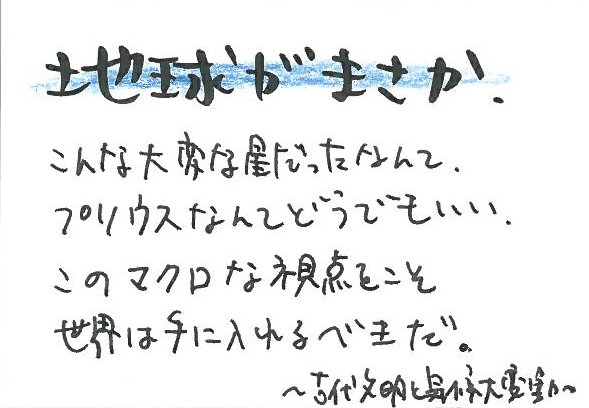 地球がまさか、
こんな大変な星だったなんて、
プリウスなんてどうでもいい、
このマクロな視点をこそ
世界は手に入れるべきだ。
〜古代文明と気候大変動〜